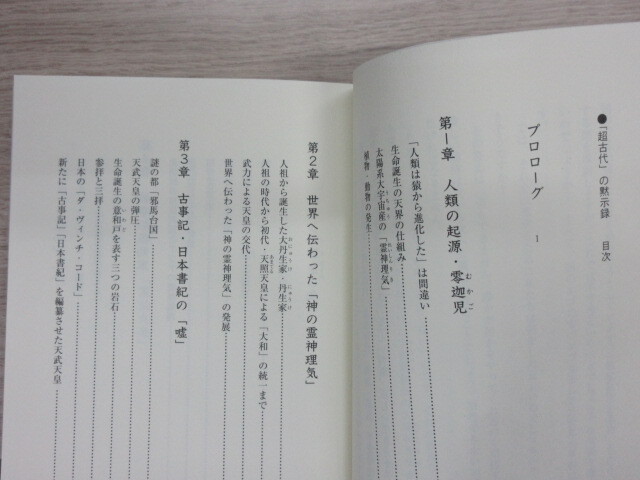 ●「超古代」の黙示録　目次
プロローグ　1
第1章　人類の起源・零迦児
「人類は猿から進化した」は間違い
生命誕生の天界の仕組み
太陽系大宇宙産の「霊神理気」
植物・動物の発生
第2章　世界へ伝わった「神の霊神理気」
人祖から誕生した大丹生家・丹生家
人祖の時代から初代・天照天皇による「大和」の統一まで
武力による天皇の交代
世界へ伝わった「神の霊神理気」の発展
第3章　古事記・日本書紀の「嘘」
謎の都「邪馬台国」
天武天皇の弾圧
生命誕生の意和戸を表す三つの岩石
参拝と三拝
日本の「ダ・ヴィンチ・コード」
新たに「古事記」「日本書紀」を編纂させた天武天皇